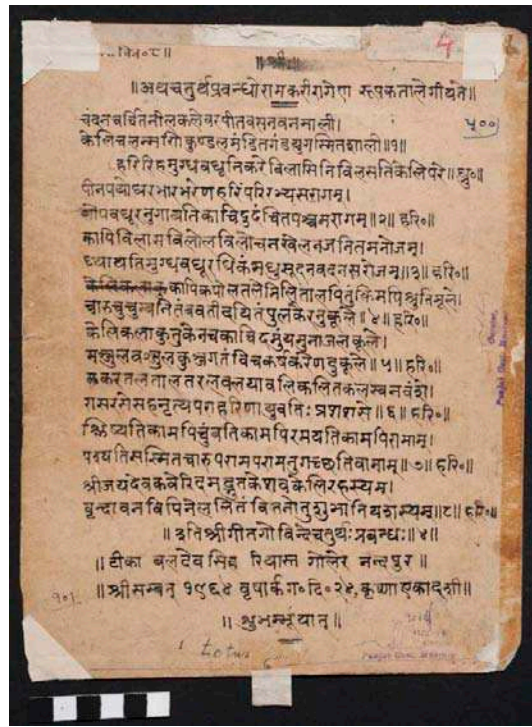 चित्र॰ ८॥
4
॥श्रीः॥
॥अथचतुर्थप्रबन्धोरामकरीरागेण रूपकतालेगीयते॥
५००
चंदनचर्चितनीलकलेवरपीतवसनवनमाली।
केलिचलन्मणिकुण्डलमंडितगंडयुगस्मितशाली॥१॥
हरिरिहमुग्धवधूनिकरेविलासिनिविलसतिकेलिपरे॥ध्रु॰॥
पीनपयोधरभारभरेणहरिंपरिरभ्यसरागम्।
गोपवधूरनुगायतिकाचिदुदंचितपञ्चमरागम्॥२॥हरि॰॥
कापिविलासविलोलविलोचनखेलनजनितमनोजम्।
ध्यायतिमुग्धवधूरधिकंमधुसूदनवदनसरोजम्॥३॥हरि॰॥
केलिकलाकु कापिकपोलतलेमिलितालपितुंकिमपिश्रुतिमूले।
चारुचुचुम्बनितंबवतीदयितंपुलकैरनुकूले॥४॥हरि॰॥
केलिकलाकुतुकेनचकाचिदमुंयमुनाजलकूले।
मञ्जुलवञ्जुलकुञ्जगतंविचकर्षकरेणदुकूले॥५॥हरि॰॥
करतलतालतरलवलयावलिकलितकलस्वनवंशे।
रासरसेसहनृत्यपराहरिणायुवतिः प्रशशंसे॥६॥हरि॰॥
श्लिष्यतिकामपिचुंबतिकामपिरमयतिकामपिरामाम्।
पश्यतिसस्मितचारुपरामपरामनुगच्छतिवामाम्॥७॥हरि॰॥
श्रीजयदेवकवेरिदमद्भुतकेशवकेलिरहस्यम्।
वृन्दावनविपिनेललितंवितनोतुशुभानियशस्यम्॥८॥हरि॰॥
॥इतिश्रीगीतगोविन्देचतुर्थः प्रबन्धः॥४॥
॥टीका बलदेव सिंह रियास्त गोलेर नन्दपुर॥
॥श्रीसम्वत् १९६४ वृषार्कग॰दि॰२५, कृष्णाएकादशी॥
॥शुभम्भूयात्॥